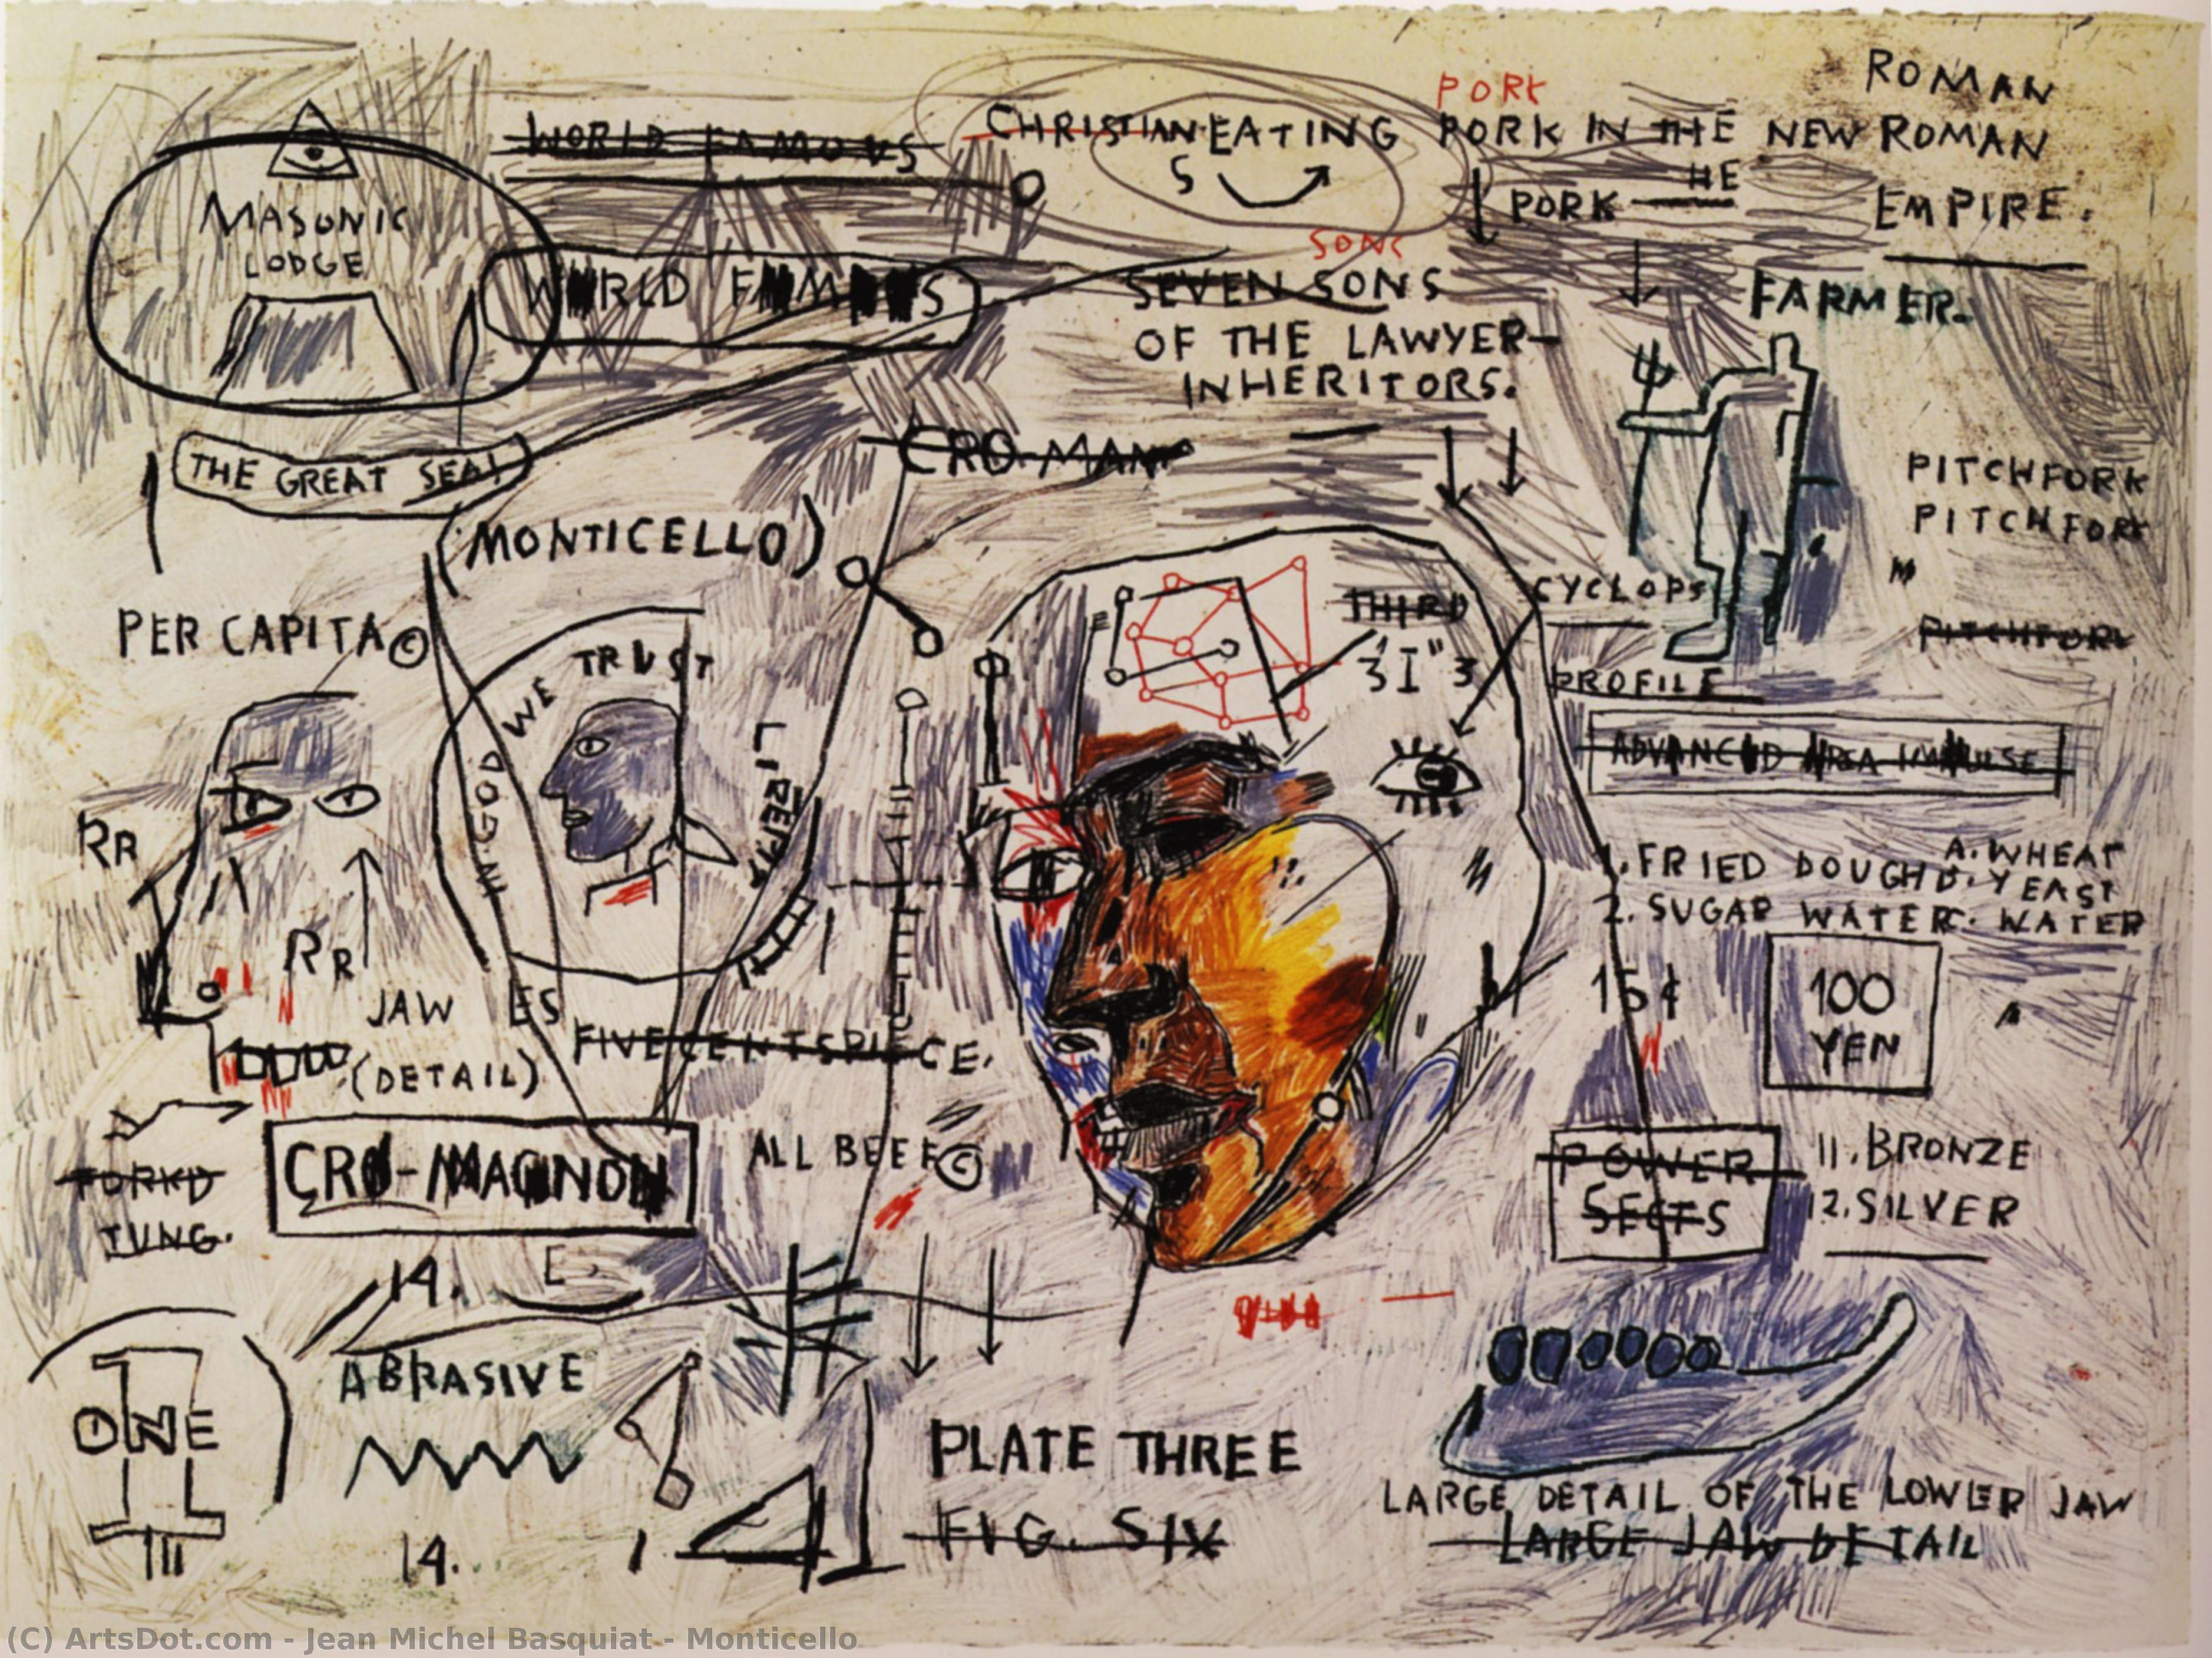 ROMAN
PORK
WORLD FAMOUS
CHRISTIAN EATING PORK IN THE NEW ROMAN
S
HE
PORK
EMPIRE.
MASONIC
LODGE
SONS
WORLD FAMOUS
SEVEN SONS
FARMER.
OF THE LAWYER-
INHERITORS.
CRO-MAN
THE GREAT SEAL
PITCHFORK
PITCHFORK
(MONTICELLO)
CYCLOPS
THIRD
PER CAPITA ©
PITCHFORK
3I"3
PROFILE
IN GOD WE TRUST
LIBERTY
ADVANCED AREA IMPULSE
RR
1. FRIED DOUGH
2. SUGAR WATER
A. WHEAT
B. YEAST
C. WATER
RR
JAW
ES
15¢
100
YEN
FIVE CENTS PIECE.
(DETAIL)
CRO-MAGNON
ALL BEEF ©
FORKD
TUNG.
POWER
SECTS
11. BRONZE
12. SILVER
14.
E.
ABRASIVE
ONE
PLATE THREE
FIG. SIX
14.
LARGE DETAIL OF THE LOWER JAW
LARGE JAW DETAIL
(C) ArtsDot.com - Jean Michel Basquiat - Monticello